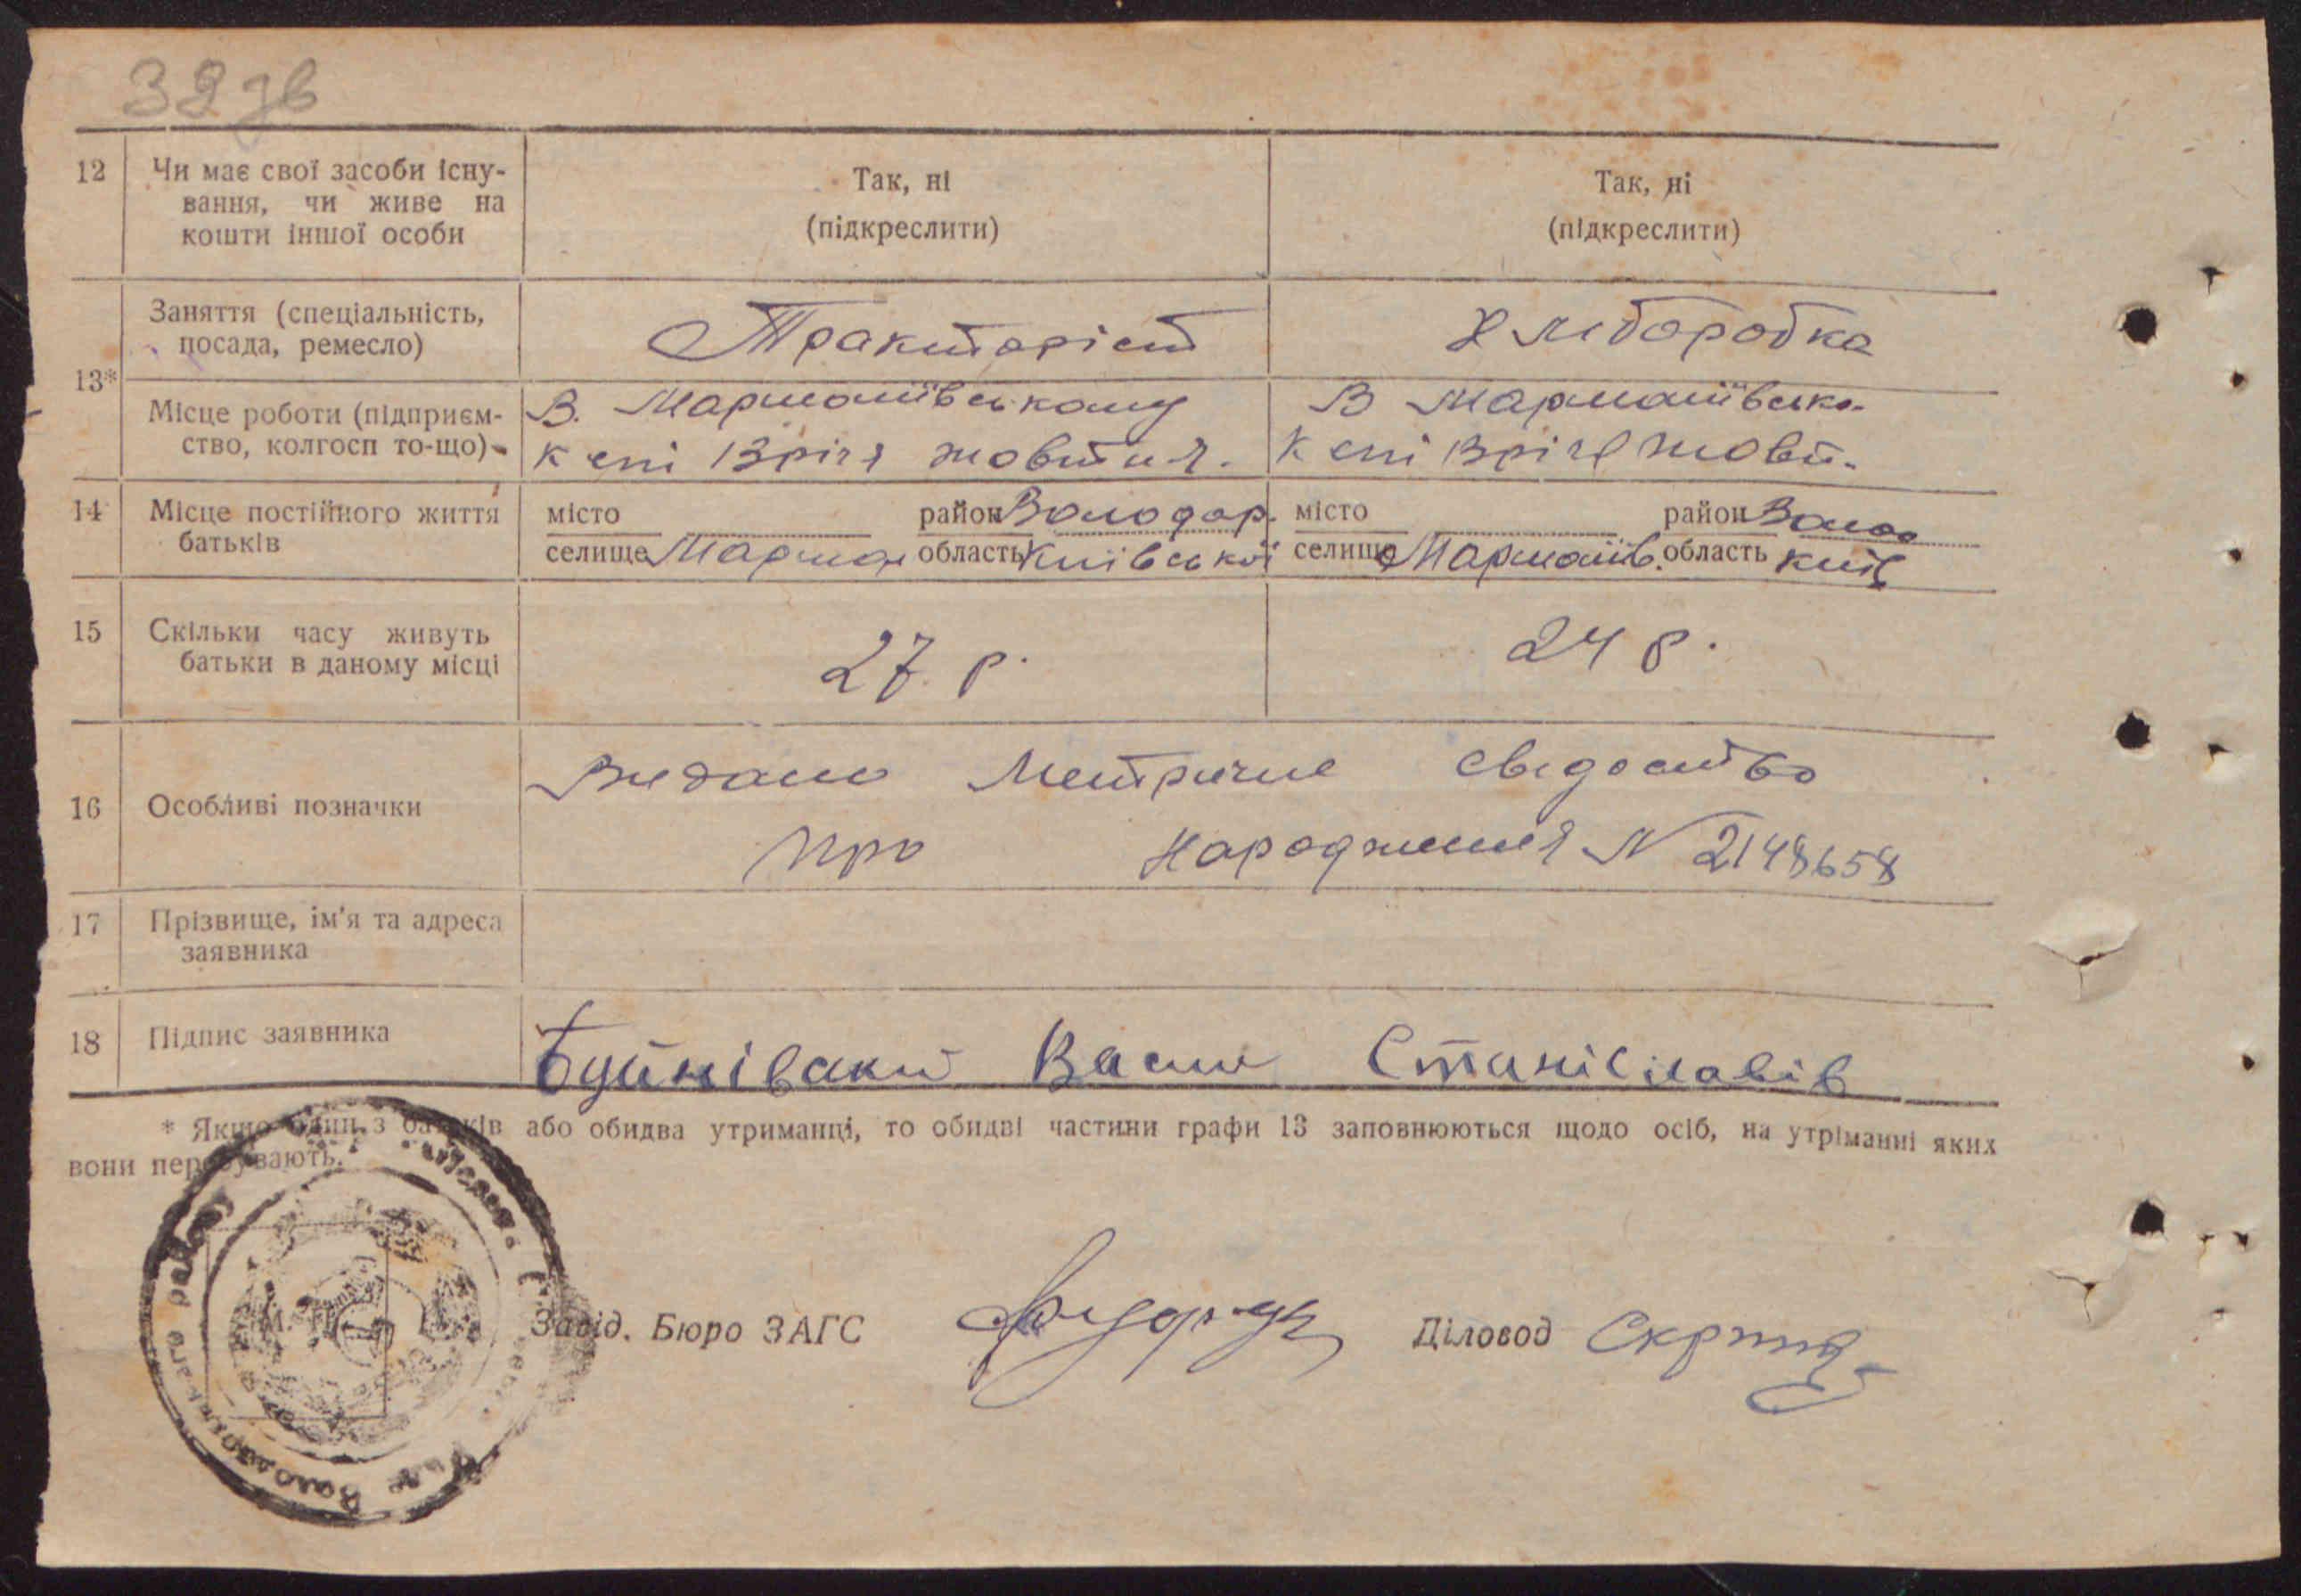 39 зв
12 Чи має свої засоби існу- Так, ні Так, ні
вання, чи живе на (підкреслити) (підкреслити)
кошти іншої особи
13*
Заняття (спеціальність, Тракторіст Хліборобка
посада, ремесло)
Місце роботи (підприєм- В. Мармоліївському В Мармоліївсько-
ство, колгосп то-що) к спі 13 річя жовтня. к спі 13 річя жовт.
14 Місце постійного життя місто район Володар. місто район Волод
батьків селище Мармол область Київської селище Мармоліїв. область Київ
15 Скільки часу живуть 27 р. 24 р.
батьки в даному місці
16 Особливі позначки Видано Метричне свідоство
про народження N 2148658
17 Прізвище, ім'я та адреса
заявника
18 Підпис заявника Буйнівський Васил Станіславів
* Якщо один з батьків або обидва утриманці, то обидві частини графи 13 заповнюються щодо осіб, на утріманні яких
вони перебувають.
Завід. Бюро ЗАГС Діловод